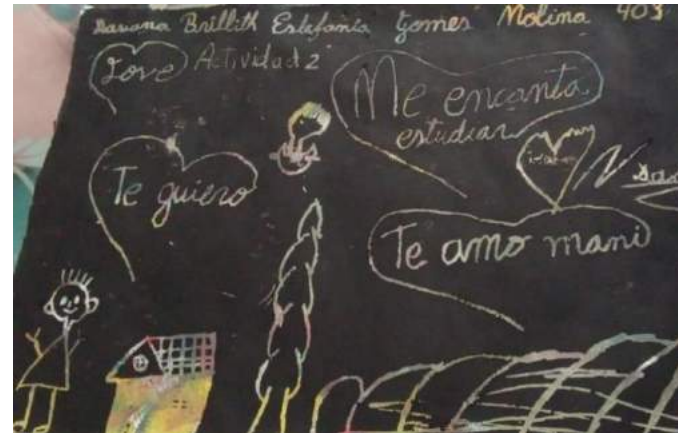 Dayana Brillith Estefania Gomes Molina 403
Love Actividad 2
Me encanta
estudiar
Te quiero
Te amo mani